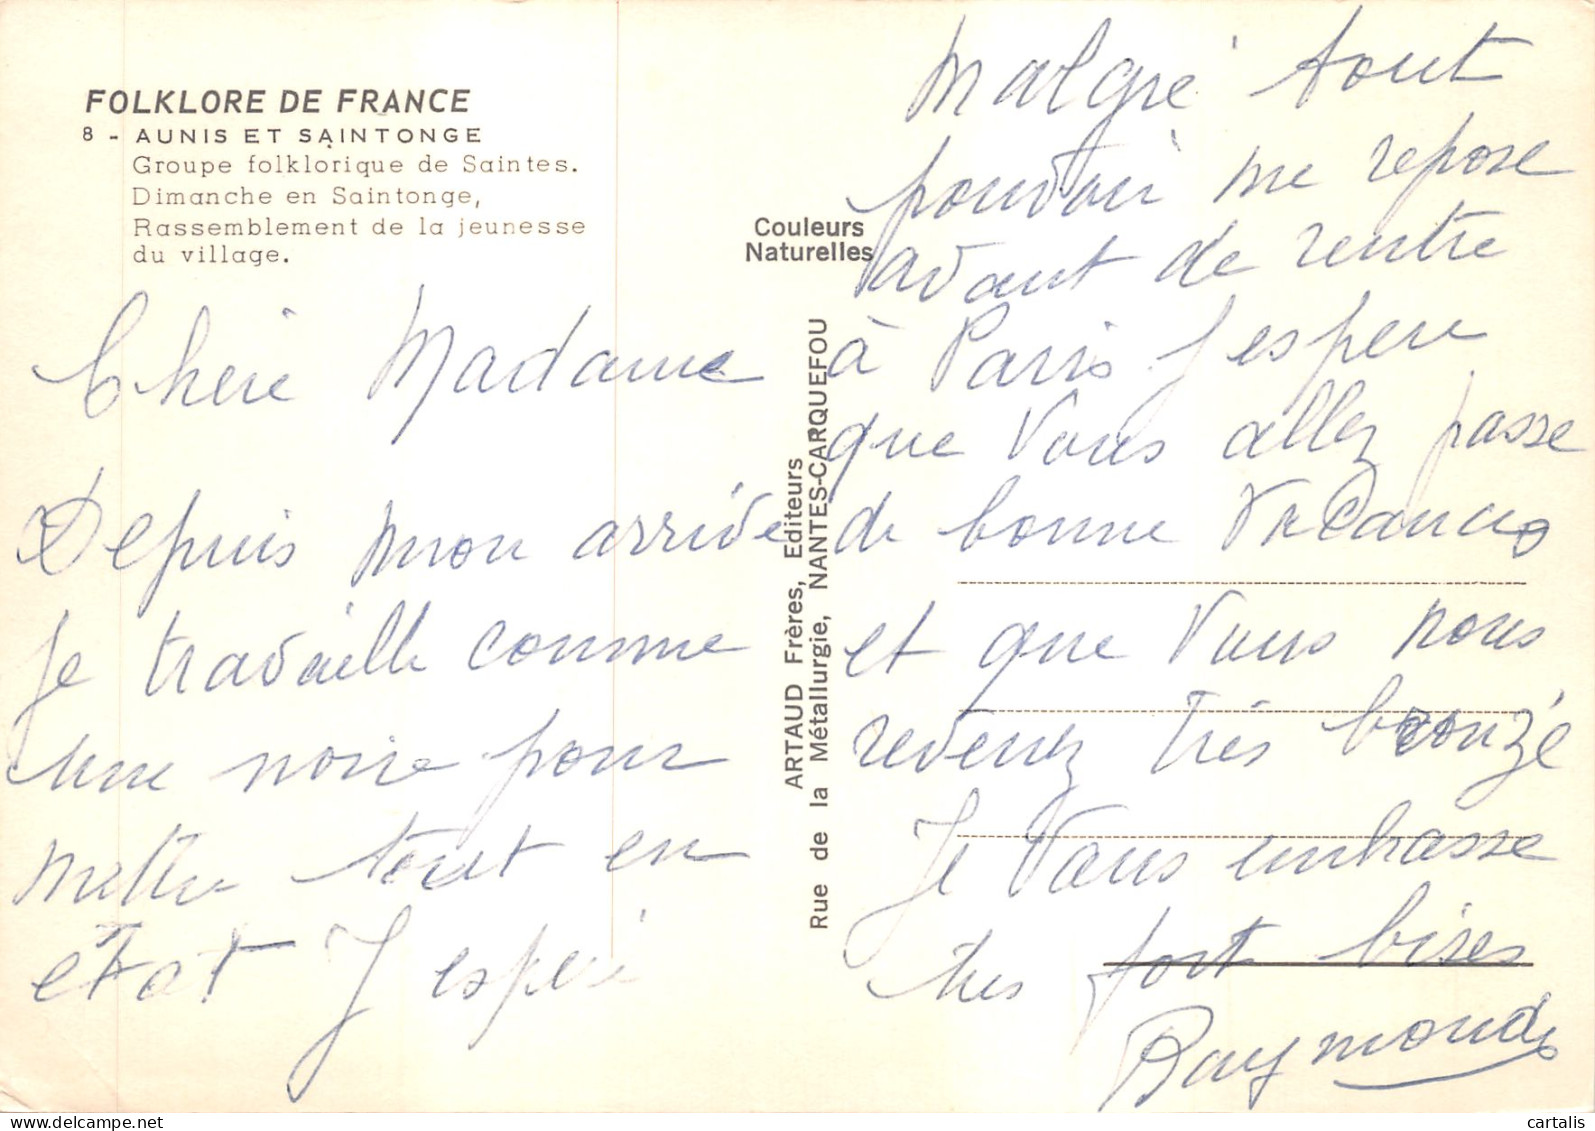 FOLKLORE DE FRANCE
8 - AUNIS ET SAINTONGE
Groupe folklorique de Saintes.
Dimanche en Saintonge,
Rassemblement de la jeunesse
du village.
Chère Madame
Depuis mon arrivée
je travaille comme
une noire pour
mettre tout en
état J espère
Couleurs
Naturelles
ARTAUD Frères, Editeurs
Rue de la Métallurgie, NANTES-CARQUEFOU
Malgré tout
pouvoir me repose
avant de rentre
à Paris J espere
que Vous allez passe
de bonne Vacances
et que Vous nous
revenez très bronzé
Je Vous embrasse
très fort bises
Raymonde
cartalis
www.delcampe.net